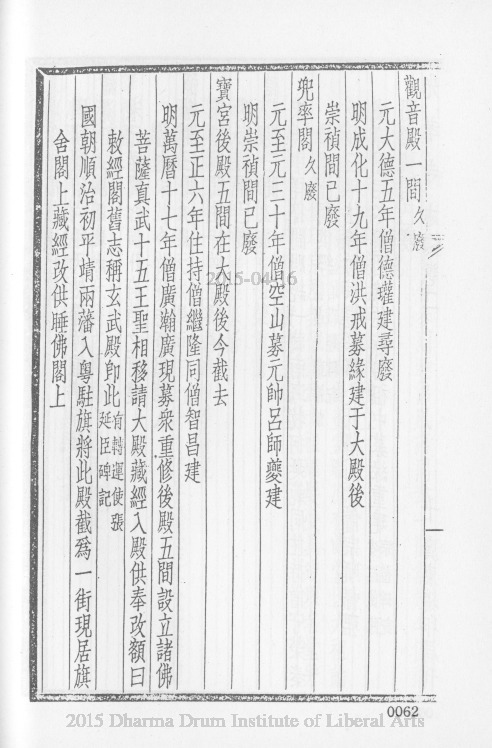 觀音殿一間久廢
元大德五年僧德瓘建尋廢
明成化十九年僧洪戒募緣建于大殿後
崇禎間已廢
兜率閣久廢
元至元三十年僧空山募元帥呂師夔建
明崇禎間已廢
寶宮後殿五間在大殿後今截去
元至正六年住持僧繼隆同僧智昌建
明萬曆十七年僧廣瀚廣現募衆重修後殿五間設立諸佛
菩薩真武十五王聖相移請大殿藏經入殿供奉改額曰
敕經閣舊志稱玄武殿即此有轉運使張
延臣碑記
國朝順治初平靖兩藩入粵駐旗將此殿截爲一街現居旗
舍閣上藏經改供睡佛閣上
2015-04-16
0062
2015 Dharma Drum Institute of Liberal Arts